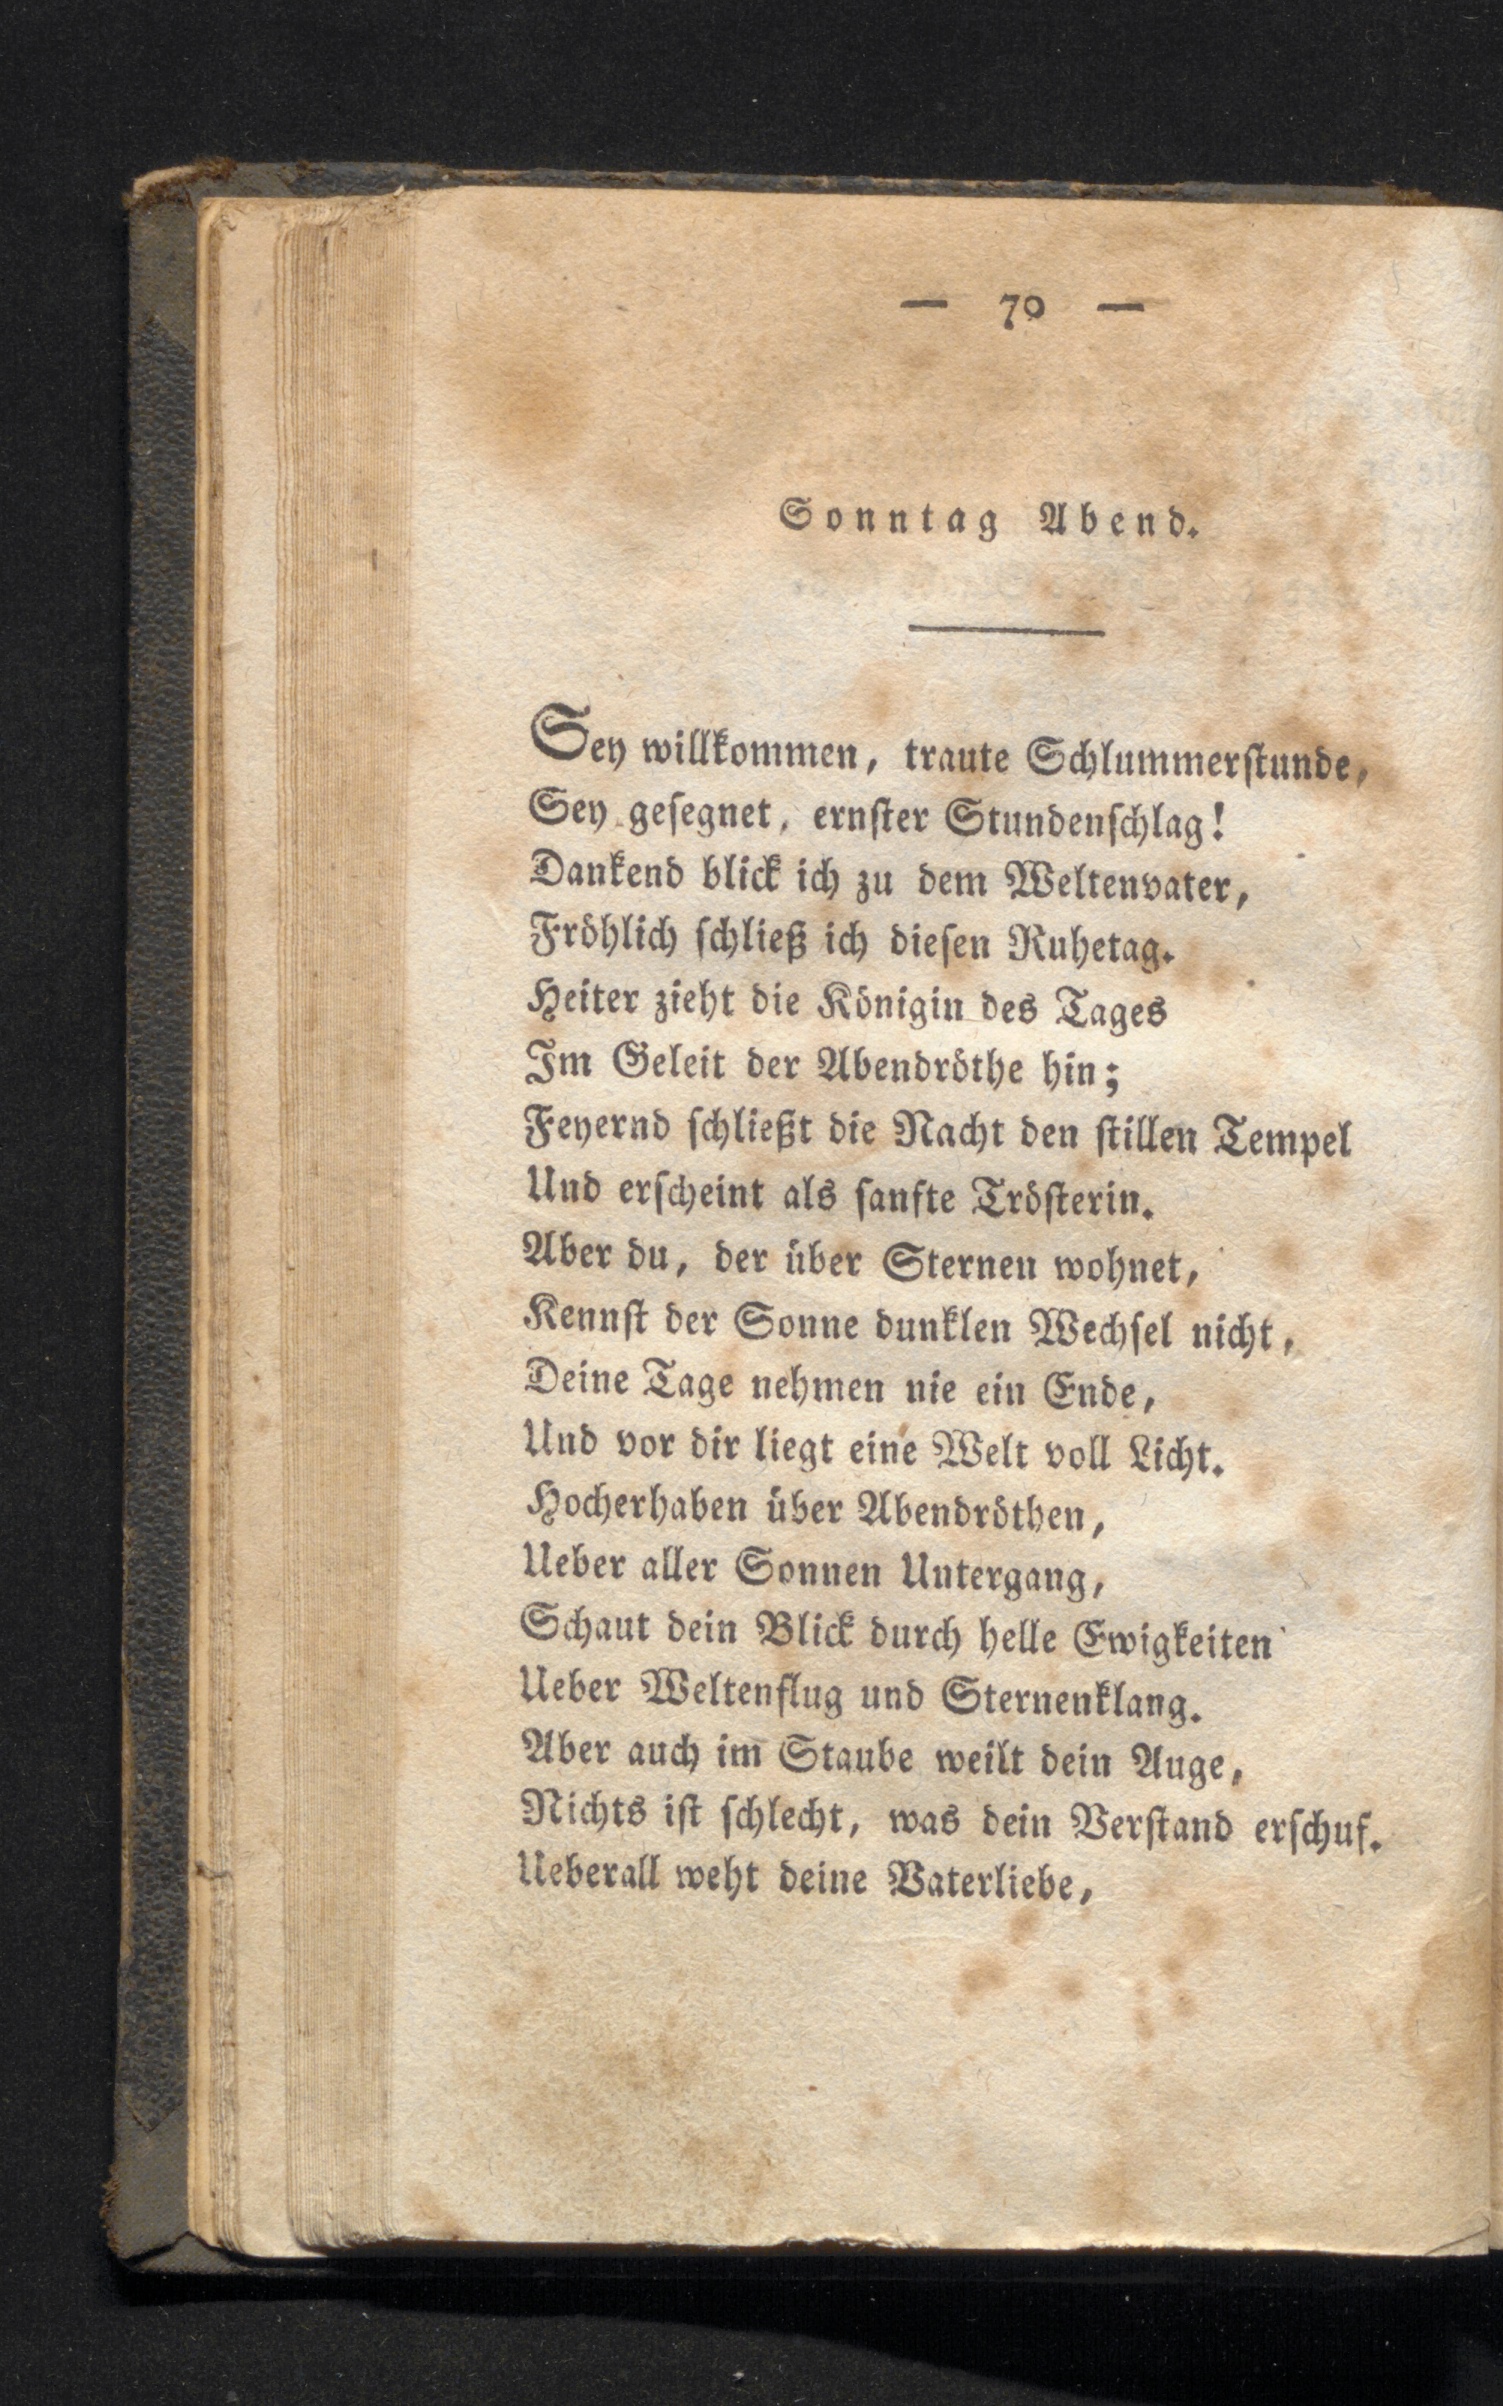 — 70 —
Sonntag Abend.
Sey willkommen, traute Schlummerstunde,
Sey gesegnet, ernster Stundenschlag!
Dankend blick ich zu dem Weltenvater,
Fröhlich schließ ich diesen Ruhetag.
Heiter zieht die Königin des Tages
Im Geleit der Abendröthe hin;
Feyernd schließt die Nacht den stillen Tempel
Und erscheint als sanfte Trösterin.
Aber du, der über Sternen wohnet,
Kennst der Sonne dunklen Wechsel nicht,
Deine Tage nehmen nie ein Ende,
Und vor dir liegt eine Welt voll Licht.
Hocherhaben über Abendröthen,
Ueber aller Sonnen Untergang,
Schaut dein Blick durch helle Ewigkeiten
Ueber Weltenflug und Sternenklang.
Aber auch im Staube weilt dein Auge,
Nichts ist schlecht, was dein Verstand erschuf.
Ueberall weht deine Vaterliebe,